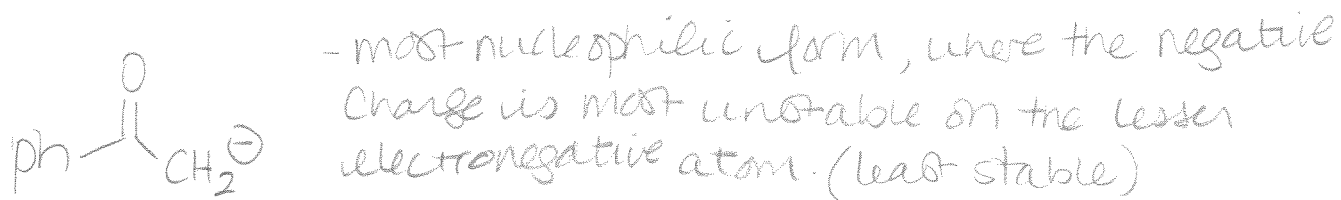 - most nucleophilic form, where the negative
O
charge is most unstable on the lesser
Ph CH2⊖
electronegative atom. (least stable)